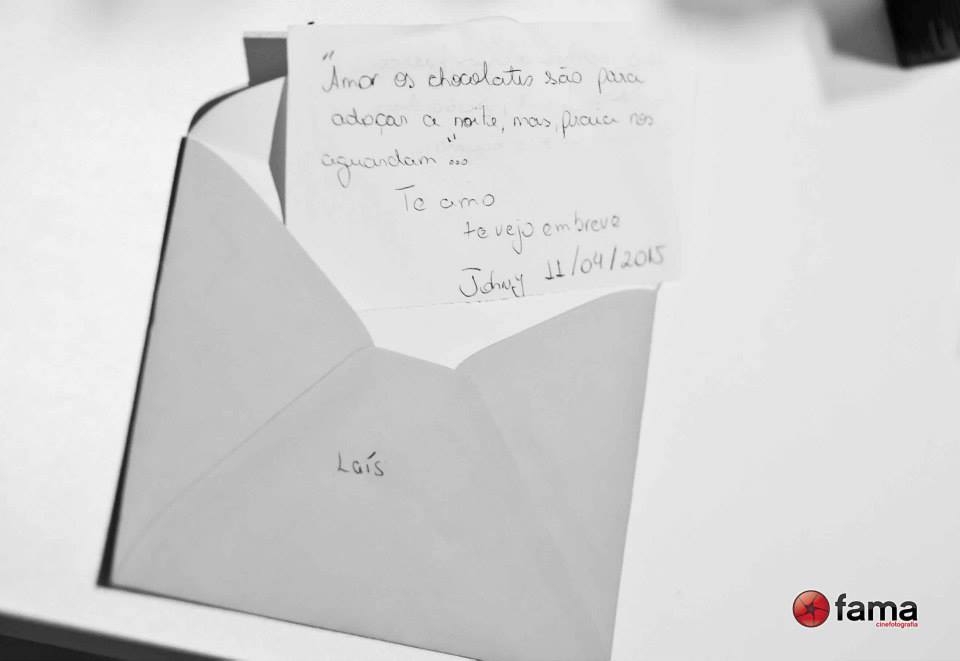 "Amor os chocolates são para
adoçar a noite, mas, praia nos
aguardam"...
Te amo
te vejo em breve
Johny 11/04/2015
Laís
fama
cinefotografia